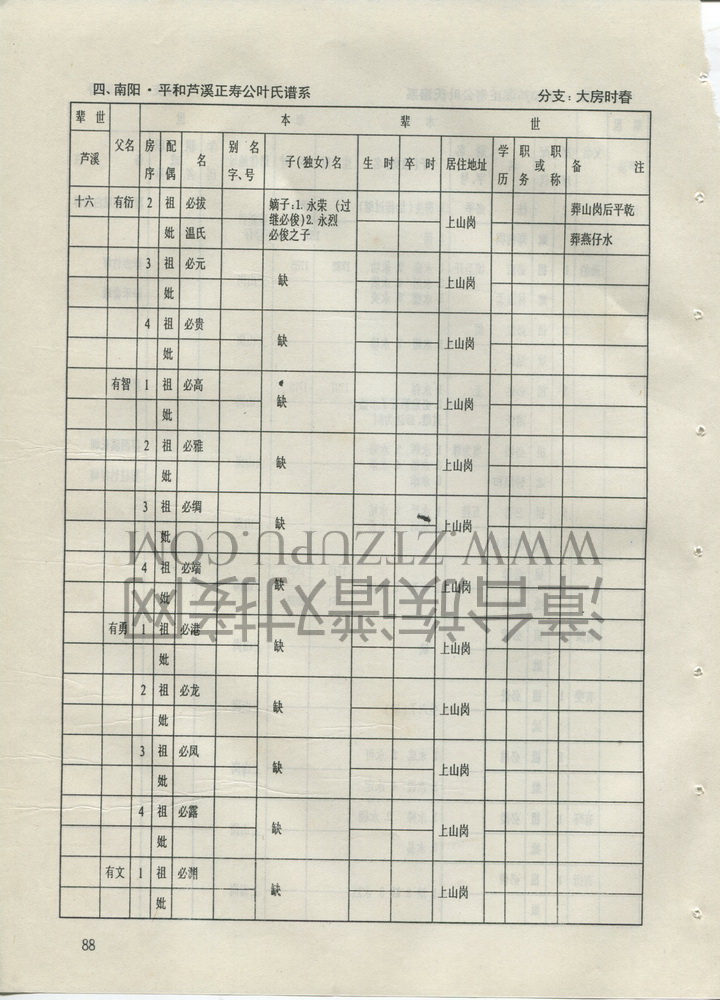 四、南阳·平和芦溪正寿公叶氏谱系 分支：大房时春
辈世 本辈世
芦溪 父名 房序 配偶 名 别名字、号 子(独女)名 生时 卒时 居住地址 学历 职务或职称 备注
十六 有衍 2 祖 必拔 嫡子:1.永荣(过继必俊)2.永烈必俊之子 上山岗 葬山岗后平乾
妣 温氏 葬燕仔水
3 祖 必元 缺 上山岗
妣
4 祖 必贵 缺 上山岗
妣
有智 1 祖 必高 缺 上山岗
妣
2 祖 必雅 缺 上山岗
妣
3 祖 必绸 缺 上山岗
妣
4 祖 必端 缺 上山岗
妣
有勇 1 祖 必港 缺 上山岗
妣
2 祖 必龙 缺 上山岗
妣
3 祖 必凤 缺 上山岗
妣
4 祖 必露 缺 上山岗
妣
有文 1 祖 必渊 缺 上山岗
妣
88
漳台族谱对接网
WWW.ZTZUPU.COM